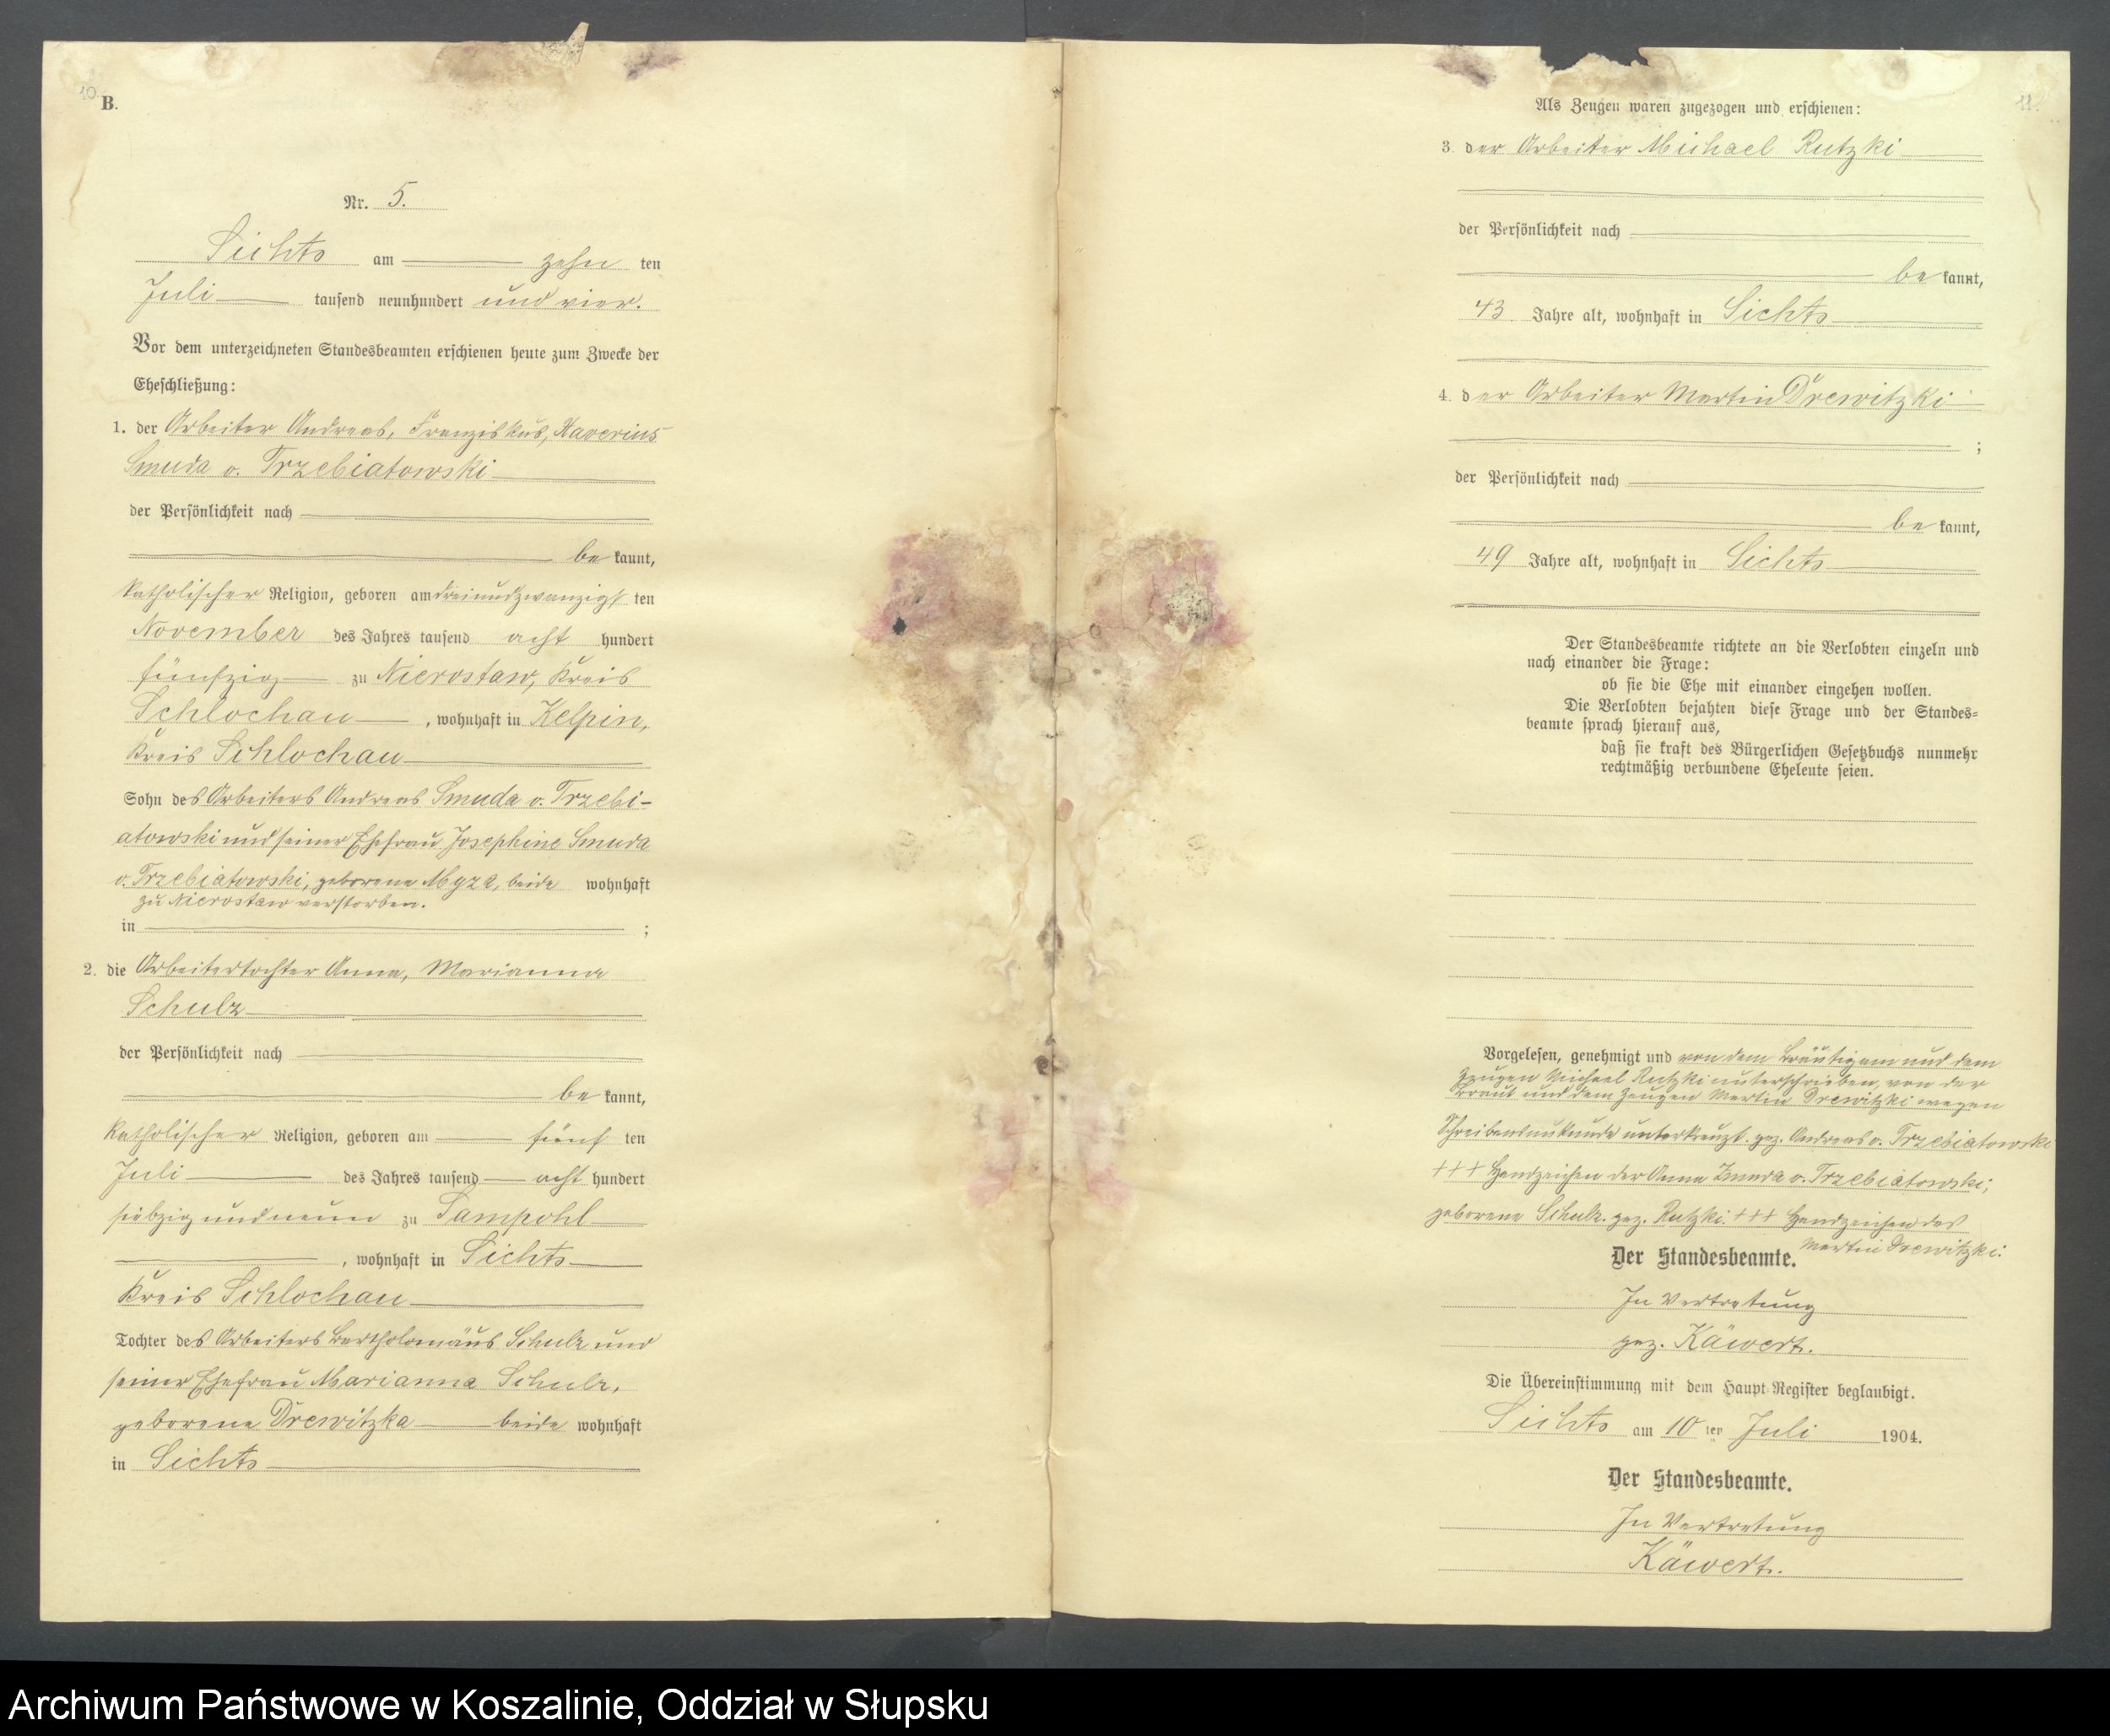 10.
B.
Nr. 5.
Sichts am zehn ten
Juli tausend neunhundert und vier.
Vor dem unterzeichneten Standesbeamten erschienen heute zum Zwecke der
Eheschließung:
1. der Arbeiter Andreas, Franziskus, Xaverius
Smuda v. Trzebiatowski
der Persönlichkeit nach
be kannt,
katholischer Religion, geboren am dreiundzwanzigs ten
November des Jahres tausend acht hundert
fünfzig zu Nierostaw, Kreis
Schlochau, wohnhaft in Kelpin,
Kreis Schlochau
Sohn des Arbeiters Andreas Smuda v. Trzebi-
atowski und seiner Ehefrau Josephine Smuda
v. Trzebiatowski, geborene Myza, beide wohnhaft
zu Nierostaw verstorben.
in ;
2. die Arbeitertochter Anna, Marianna
Schulz
der Persönlichkeit nach
be kannt,
katholischer Religion, geboren am fünf ten
Juli des Jahres tausend acht hundert
siebzig und neun zu Sampohl
, wohnhaft in Sichts
Kreis Schlochau
Tochter des Arbeiters Bartholomäus Schulz und
seiner Ehefrau Marianna Schulz,
geborene Drewitzka beide wohnhaft
in Sichts
11.
Als Zeugen waren zugezogen und erschienen:
3. der Arbeiter Michael Rutzki
der Persönlichkeit nach
be kannt,
43 Jahre alt, wohnhaft in Sichts
4. der Arbeiter Martin Drewitzki
;
der Persönlichkeit nach
be kannt,
49 Jahre alt, wohnhaft in Sichts
Der Standesbeamte richtete an die Verlobten einzeln und
nach einander die Frage:
ob sie die Ehe mit einander eingehen wollen.
Die Verlobten bejahten diese Frage und der Standes-
beamte sprach hierauf aus,
daß sie kraft des Bürgerlichen Gesetzbuchs nunmehr
rechtmäßig verbundene Eheleute seien.
Vorgelesen, genehmigt und von dem Bräutigam und dem
Zeugen Michael Rutzki unterschrieben, von der
Braut und dem Zeugen Martin Drewitzki wegen
Schreibensunkunde unterkreuzt. gez. Andreas v. Trzebiatowski
+++ Handzeichen der Anna Smuda v. Trzebiatowski,
geborene Schulz. gez. Rutzki. +++ Handzeichen des
Martin Drewitzki.
Der Standesbeamte.
In Vertretung
gez. Käwert.
Die Übereinstimmung mit dem Haupt-Register beglaubigt.
Sichts am 10 ten Juli 1904.
Der Standesbeamte.
In Vertretung
Käwert.
Archiwum Państwowe w Koszalinie, Oddział w Słupsku